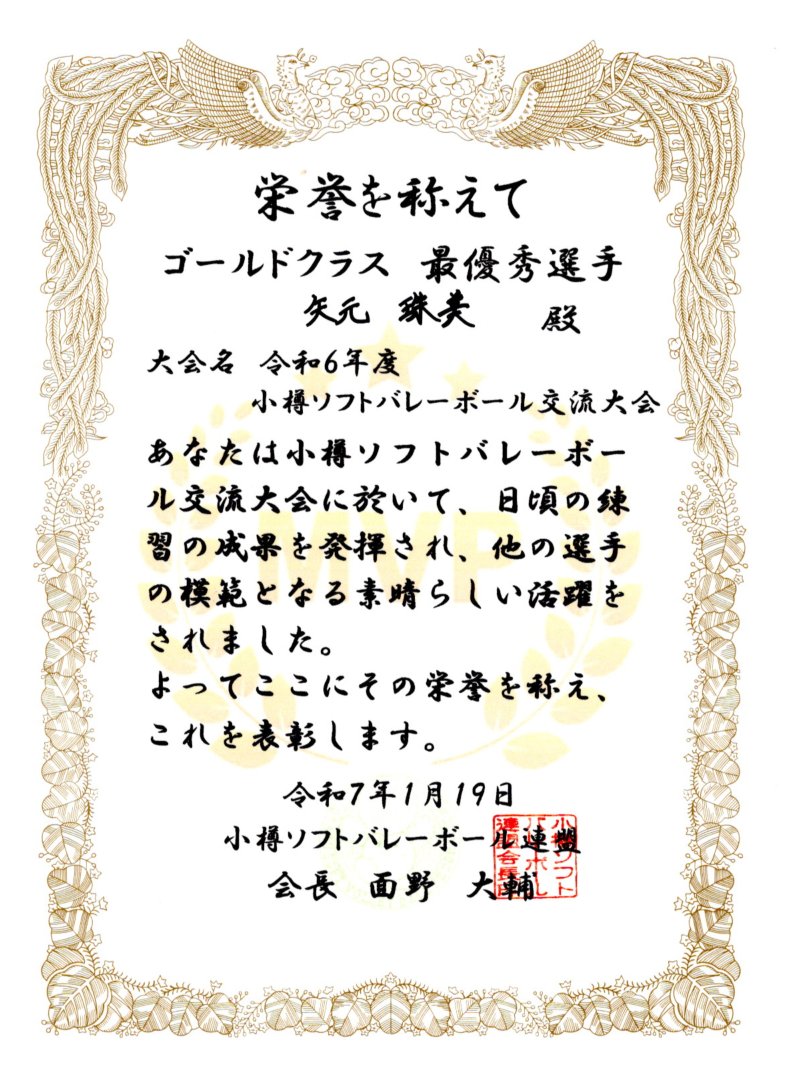 栄誉を称えて
ゴールドクラス 最優秀選手
矢元 珠美 殿
大会名 令和6年度
小樽ソフトバレーボール交流大会
あなたは小樽ソフトバレーボー
ル交流大会に於いて、日頃の練
習の成果を発揮され、他の選手
の模範となる素晴らしい活躍を
されました。
よってここにその栄誉を称え、
これを表彰します。
令和7年1月19日
小樽ソフトバレーボール連盟
会長 面野 大輔
MVP
小樽ソフト
バレーボール
連盟会長印